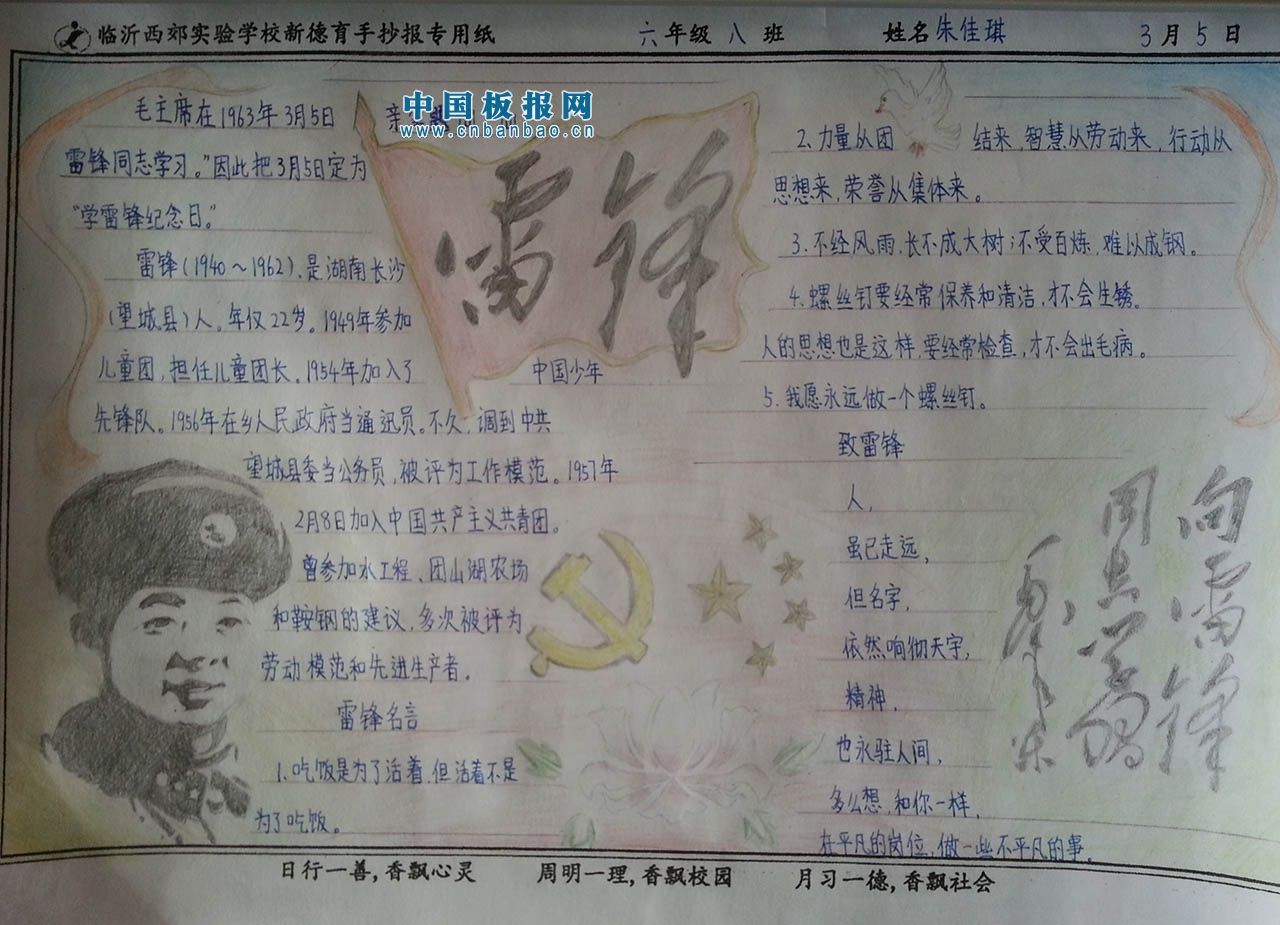 临沂西郊实验学校新德育手抄报专用纸 六年级八班 姓名朱佳琪 3月5日
中国板报网
www.cnbanbao.cn
毛主席在1963年3月5日 亲
雷锋同志学习。”因此把3月5日定为
“学雷锋纪念日。”
雷锋(1940~1962),是湖南长沙
(望城县)人。年仅22岁。1949年参加
儿童团,担任儿童团长。1954年加入了 中国少年
先锋队。1956年在乡人民政府当通迅员。不久,调到中共
望城县委当公务员,被评为工作模范。1957年
2月8日加入中国共产主义共青团。
曾参加水工程、团山湖农场
和鞍钢的建议,多次被评为
劳动模范和先进生产者。
雷锋名言
1.吃饭是为了活着,但活着不是
为了吃饭。
雷锋
2.力量从团 结来,智慧从劳动来,行动从
思想来,荣誉从集体来。
3.不经风雨,长不成大树;不受百炼,难以成钢。
4.螺丝钉要经常保养和清洁,才不会生锈。
人的思想也是这样,要经常检查,才不会出毛病。
5.我愿永远做一个螺丝钉。
致雷锋
人,
虽已走远,
但名字,
依然响彻天宇,
精神,
也永驻人间,
多么想,和你一样,
在平凡的岗位,做一些不平凡的事。
向雷锋
同志学习
毛泽东
日行一善,香飘心灵 周明一理,香飘校园 月习一德,香飘社会